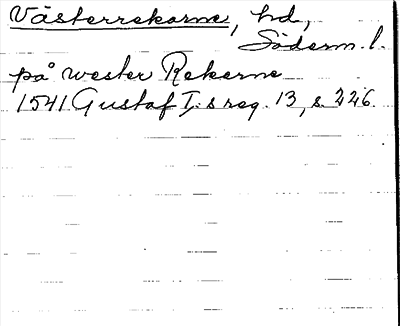 Västerrekarne, hd,
Söderm. l.
på wester Rekerne
1541 Gustaf I:s reg. 13, s. 226.